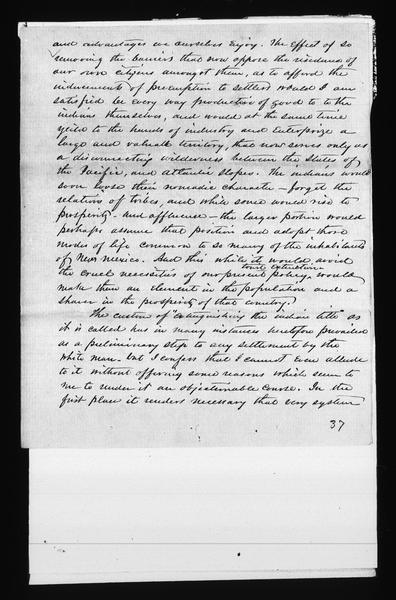 and advantages we ourselves enjoy. The effect of so
removing the barriers that now oppose the residence of
our own citizens amongst them, as to afford the
inducements of preemption to settlers would I am
satisfied be every way productive of good to to the
indians themselves, and would at the same time
yield to the hands of industry and Enterprize a
large and valuable territory, that now serves only as
a disconnecting wilderness between the States of
the Pacific, and Atlantic slopes. The indians would
soon loose their nomadic character – forget the
relations of tribes, and while some would rise to
prosperity – and affluence – the larger portion would
perhaps assume that position and adopt those
mode of life common to so many of the inhabitants
of New Mexico. And this while it would avoid
total extinction
the cruel necessities of our present policy, would
make them an element in the population and a
sharer in the prosperity of that country.
The custom of "extinguishing the indian title" as
it is called has in many instances heretofore prevailed
as a preliminary step to any settlement by the
white man – but I confess that I cannot even allude
to it without offering some reasons which seem to
me to render it an objectionable course. In the
first place it renders necessary that very system
37